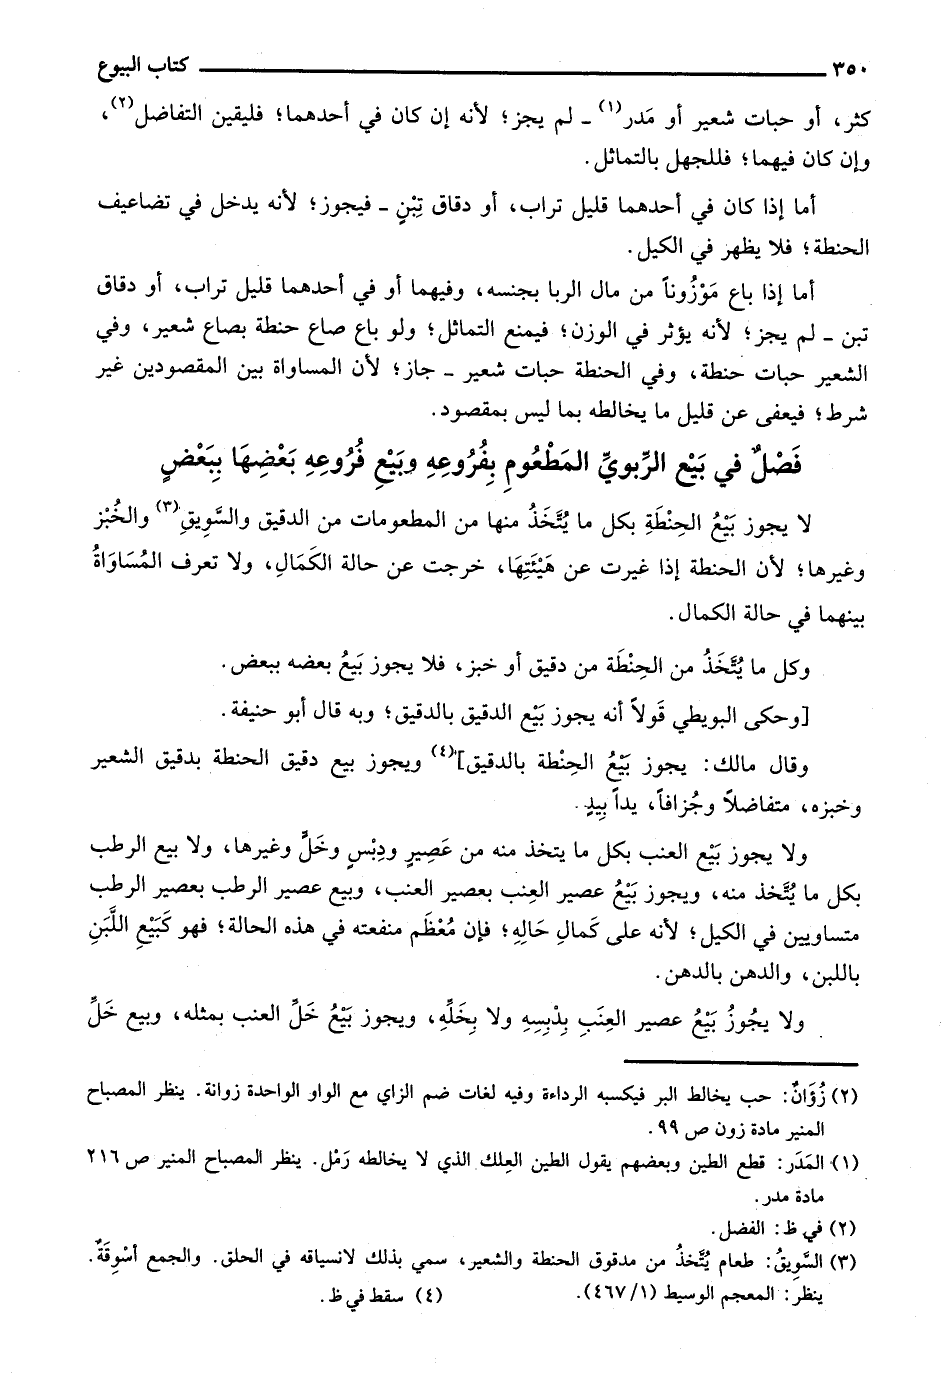 ٣٥٠ كتاب البيوع
كثر، أو حبات شعير أو مَدر(١) ـ لم يجز؛ لأنه إن كان في أحدهما؛ فليقين التفاضل(٢)،
وإن كان فيهما؛ فللجهل بالتماثل.
أما إذا كان في أحدهما قليل تراب، أو دقاق تِبْنٍ ـ فيجوز؛ لأنه يدخل في تضاعيف
الحنطة؛ فلا يظهر في الكيل.
أما إذا باع مَوْزُوناً من مال الربا بجنسه، وفيهما أو في أحدهما قليل تراب، أو دقاق
تبن ـ لم يجز؛ لأنه يؤثر في الوزن؛ فيمنع التماثل؛ ولو باع صاع حنطة بصاع شعير، وفي
الشعير حبات حنطة، وفي الحنطة حبات شعير ـ جاز؛ لأن المساواة بين المقصودين غير
شرط؛ فيعفى عن قليل ما يخالطه بما ليس بمقصود.
فَصْلٌ في بَيْع الرِّبويِّ المَطْعُومِ بِفُرُوعِهِ وبَيْعِ فُرُوعِهِ بَعْضِهَا بِبَعْضٍ
لا يجوز بَيْعُ الحِنْطَةِ بكل ما يُتَّخَذُ منها من المطعومات من الدقيق والسَّوِيقِ(٣) والخُبْز
وغيرها؛ لأن الحنطة إذا غيرت عن هَيْئَتِهَا، خرجت عن حالة الكَمَالِ، ولا تعرف المُسَاوَاةُ
بينهما في حالة الكمال.
وكل ما يُتَّخَذُ من الحِنْطَة من دقيق أو خبز، فلا يجوز بَيعُ بعضه ببعض.
[وحكى البويطي قَولاً أنه يجوز بَيْع الدقيق بالدقيق؛ وبه قال أبو حنيفة.
وقال مالك: يجوز بَيْعُ الحِنْطة بالدقيق](٤) ويجوز بيع دقيق الحنطة بدقيق الشعير
وخبزه، متفاضلاً وجُزافاً، يداً بِيدٍ.
ولا يجوز بَيْع العنب بكل ما يتخذ منه من عَصِيرٍ ودِبْسٍ وخَلٍّ وغيرها، ولا بيع الرطب
بكل ما يُتَّخذ منه، ويجوز بَيْعُ عصير العِنب بعصير العنب، وبيع عصير الرطب بعصير الرطب
متساويين في الكيل؛ لأنه على كَمالِ حَالِهِ؛ فإن مُعْظَم منفعته في هذه الحالة؛ فهو كَبَيْعِ اللَّبَنِ
باللبن، والدهن بالدهن.
ولا يجُوزُ بَيْعُ عصير العِنَبِ بِدْبِسِهِ ولا بِخَلِّهِ، ويجوز بَيْعُ خَلِّ العنب بمثله، وبيع خَلِّ
(٢) زُوَانٌ: حب يخالط البر فيكسبه الرداءة وفيه لغات ضم الزاي مع الواو الواحدة زوانة. ينظر المصباح
المنير مادة زون ص ٩٩.
(١) المَدَر: قطع الطين وبعضهم يقول الطين العِلك الذي لا يخالطه رَمْل. ينظر المصباح المنير ص ٢١٦
مادة مدر.
(٢) في ظ: الفضل.
(٣) السَّوِيقُ: طعام يُتَّخذُ من مدقوق الحنطة والشعير، سمي بذلك لانسياقه في الحلق. والجمع أسْوِقَةٌ.
ينظر: المعجم الوسيط (٤٦٧/١). (٤) سقط في ظ.